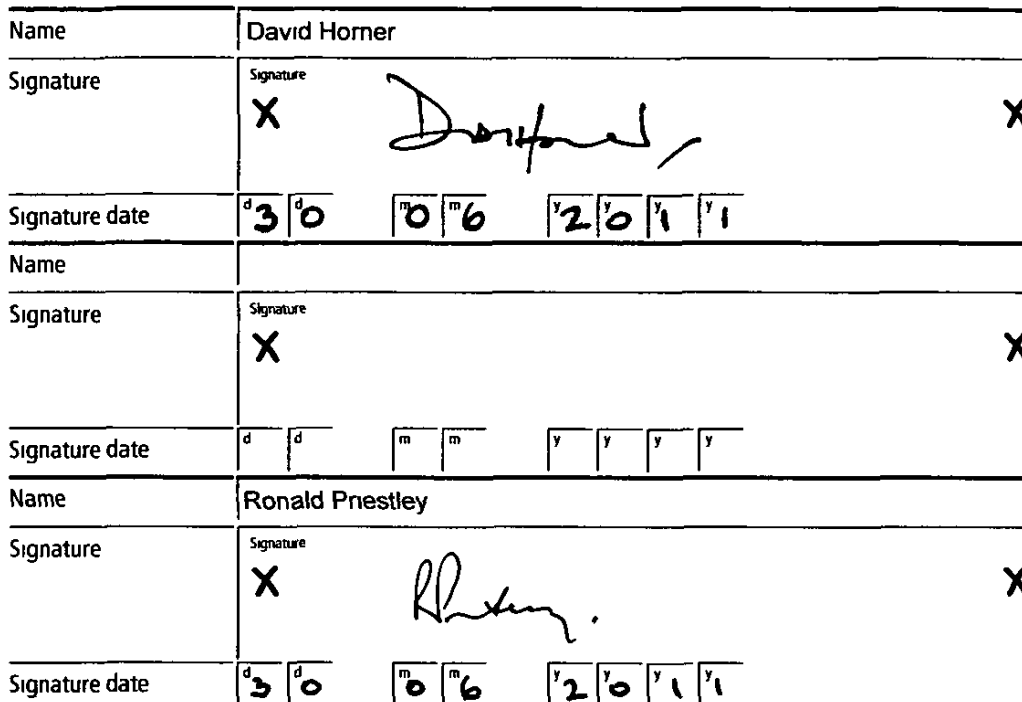 Name David Horner
Signature Signature
X David Horner X
Signature date d3 d0 m0 m6 y2 y0 y1 y1
Name
Signature Signature
X X
Signature date d d m m y y y y
Name Ronald Priestley
Signature Signature
X RPriestley. X
Signature date d3 d0 m0 m6 y2 y0 y1 y1